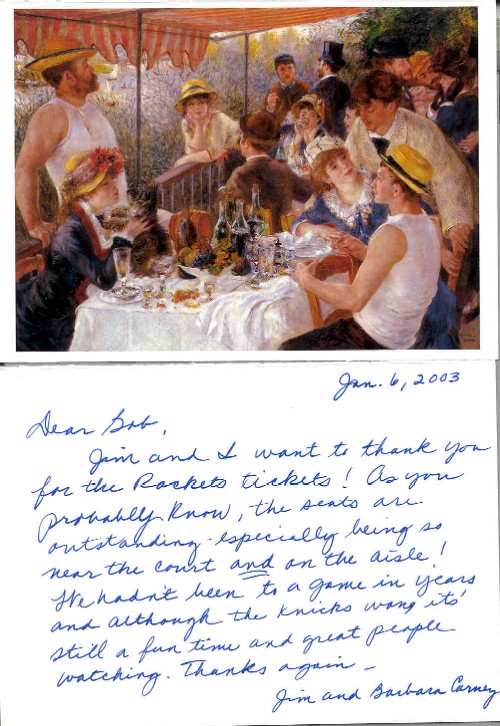 Jan. 6, 2003
Dear Bob,
Jim and I want to thank you
for the Rockets tickets! As you
probably know, the seats are
outstanding - especially being so
near the court and on the aisle!
We hadn't been to a game in years
and although the Knicks wong it's
still a fun time and great people
watching. Thanks again -
Jim and Barbara Carney